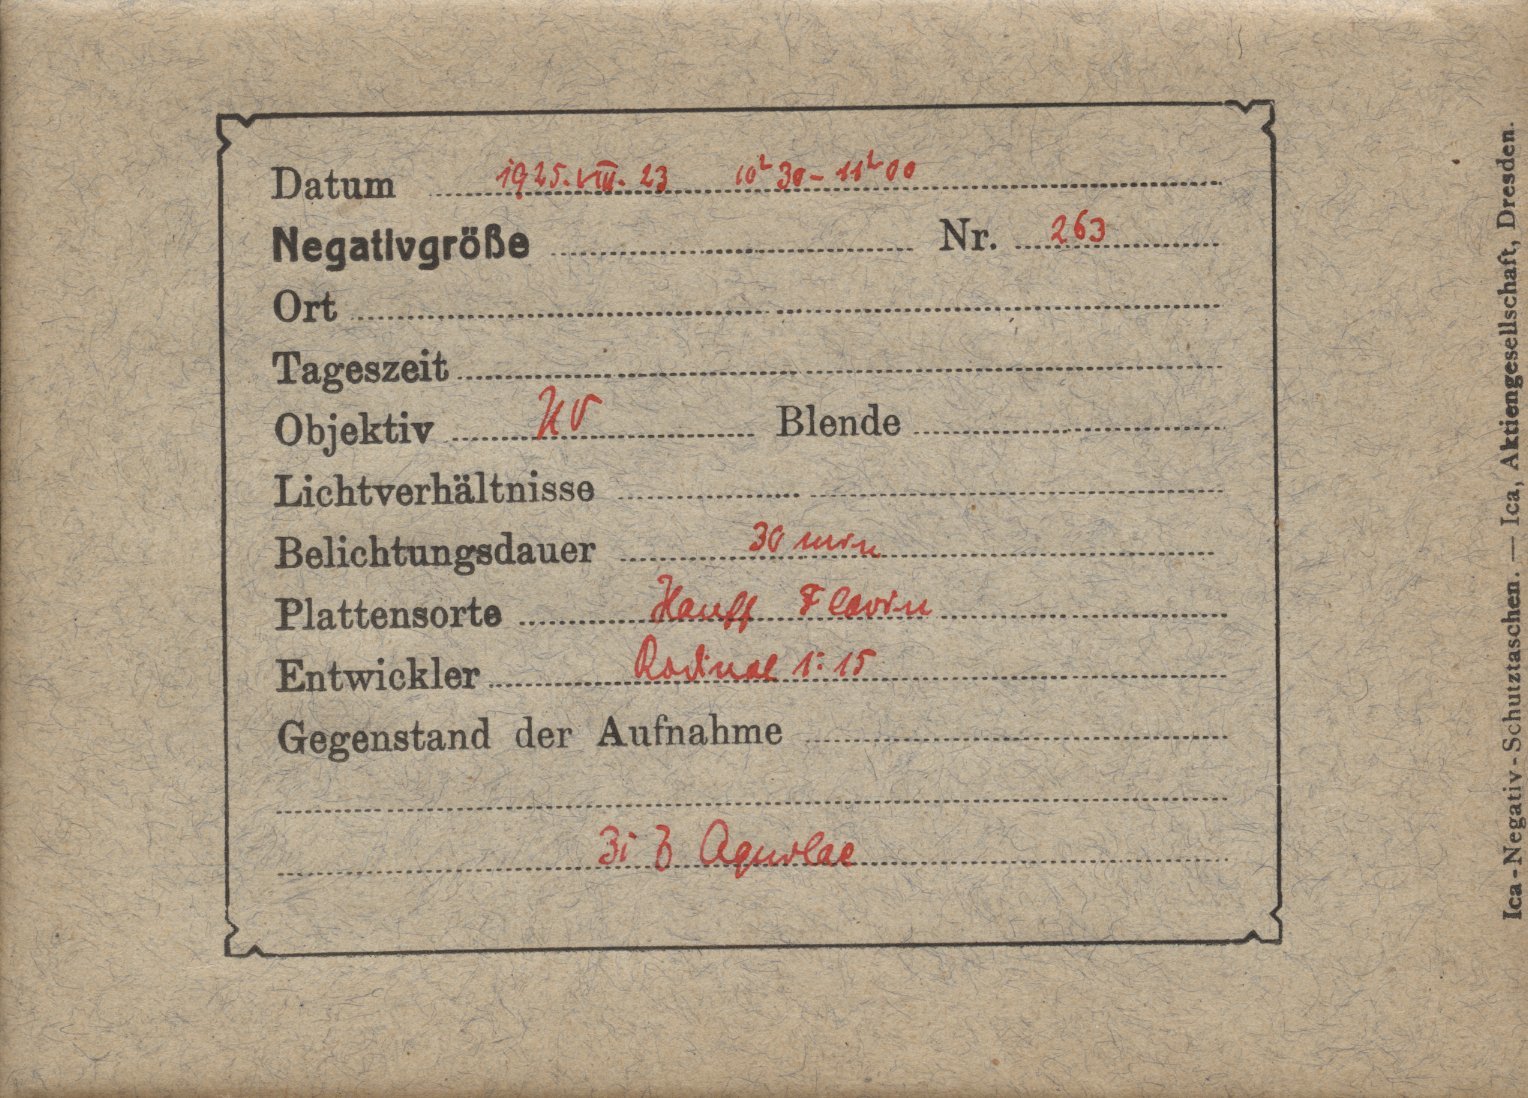 Datum 1925.VIII.23 10ʰ30-11ʰ00
Negativgröße Nr. 263
Ort
Tageszeit
Objektiv UV Blende
Lichtverhältnisse
Belichtungsdauer 30 min
Plattensorte Hauff Flavin
Entwickler Rodinal 1:15
Gegenstand der Aufnahme
Aquilae
Ica-Negativ-Schutztaschen. — Ica, Aktiengesellschaft, Dresden.